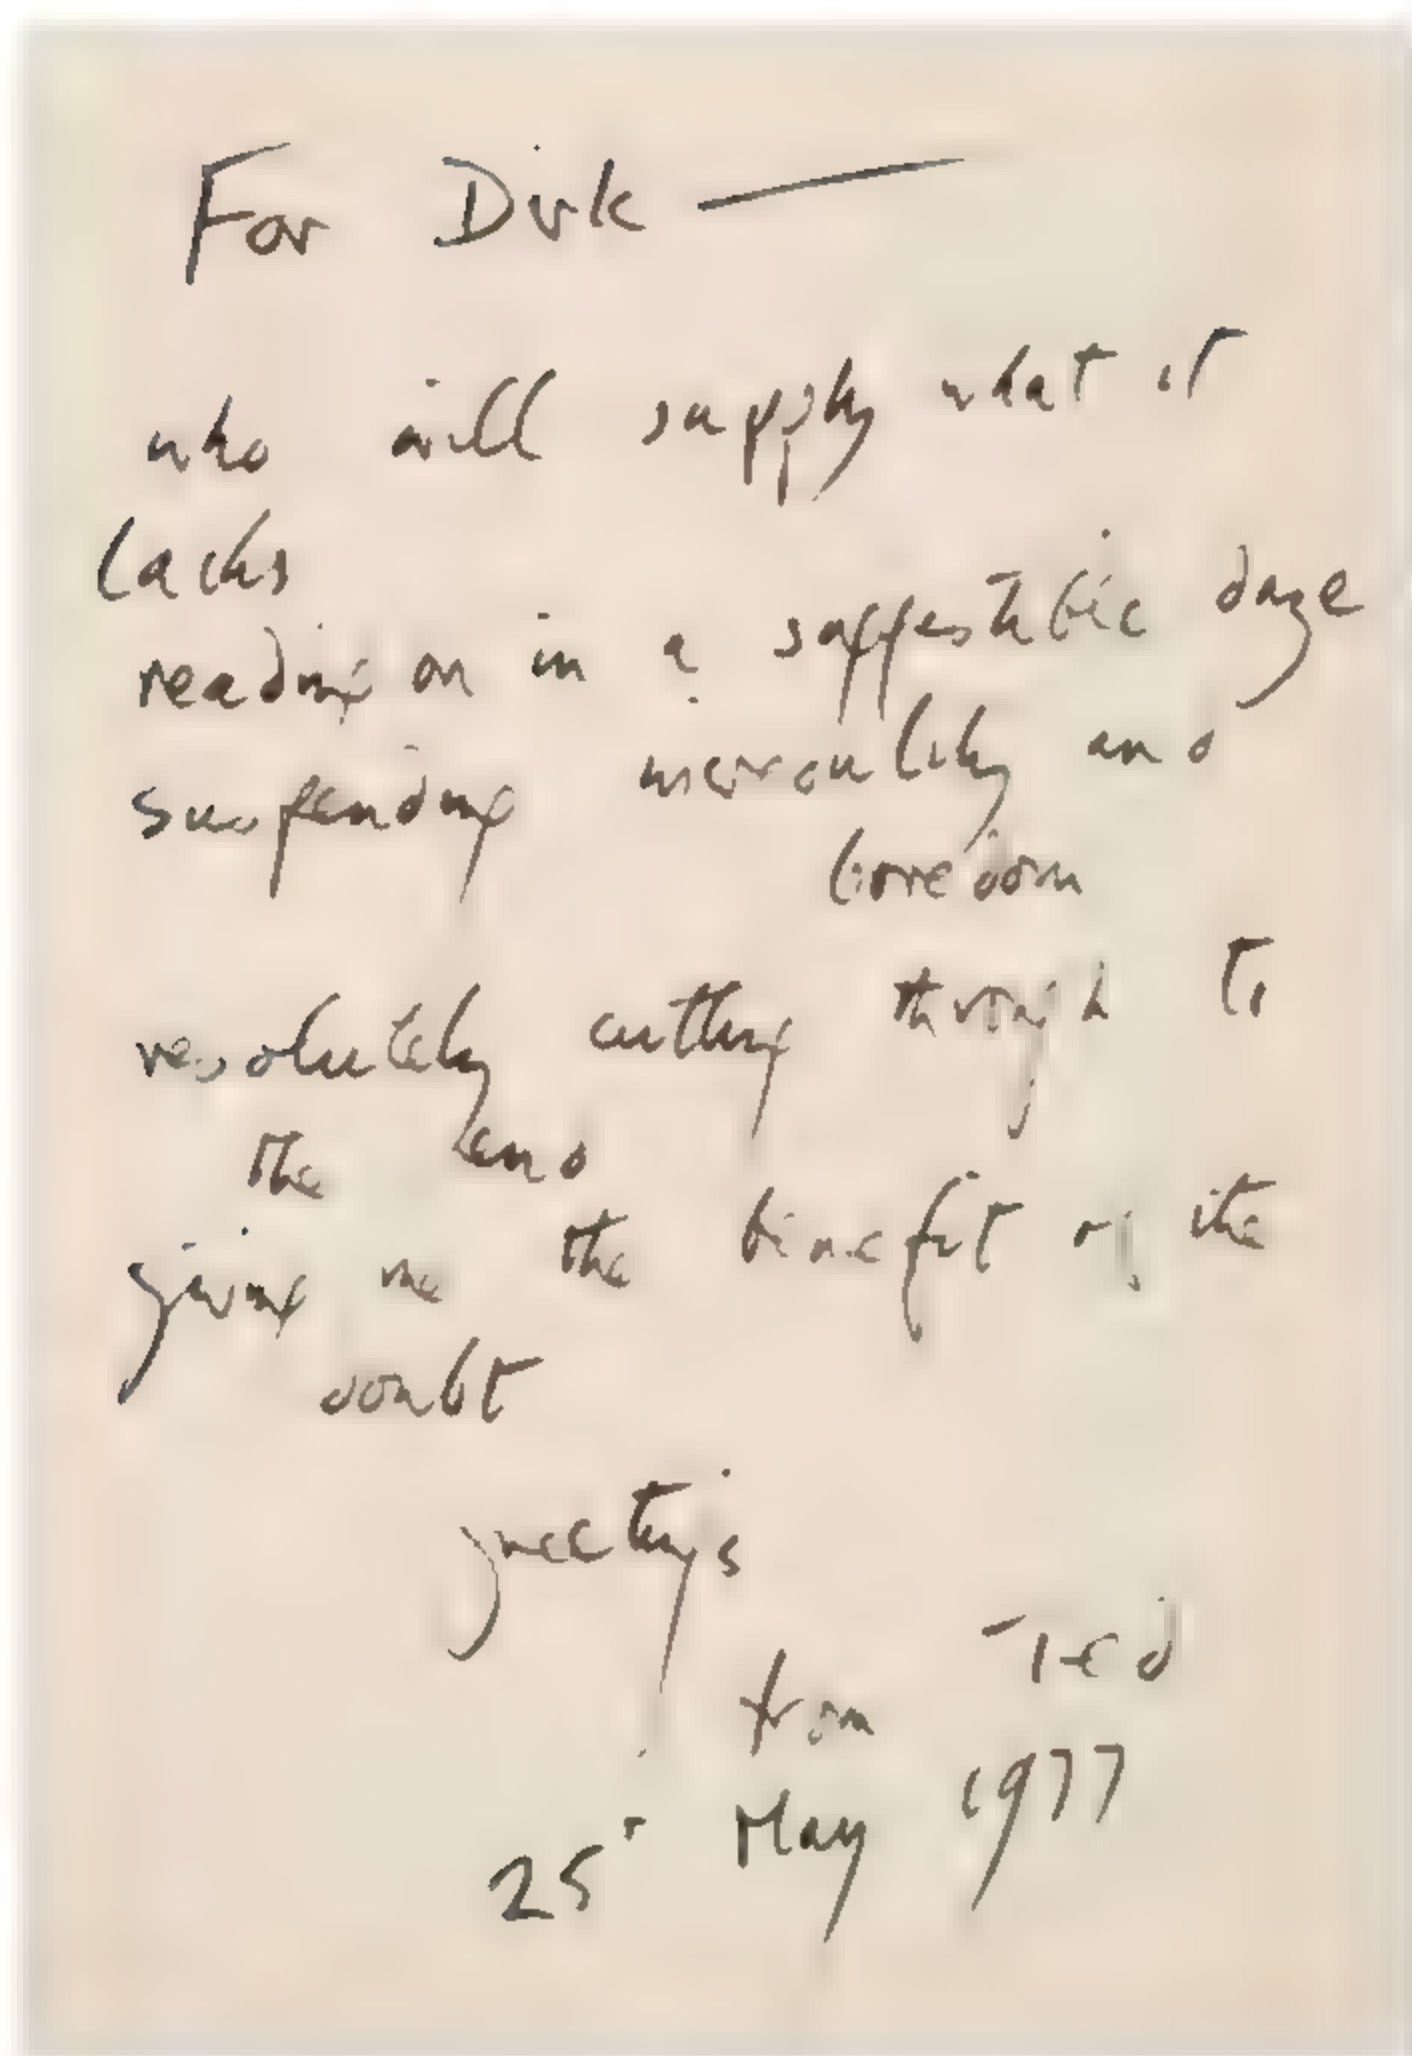 For Dirk —
who will supply what it
lacks
reading on in a suggestible daze
suspending incredulity and
boredom
resolutely cutting through to
the end
giving me the benefit of the
doubt
greetings
from Ted
25ᵗ May 1977